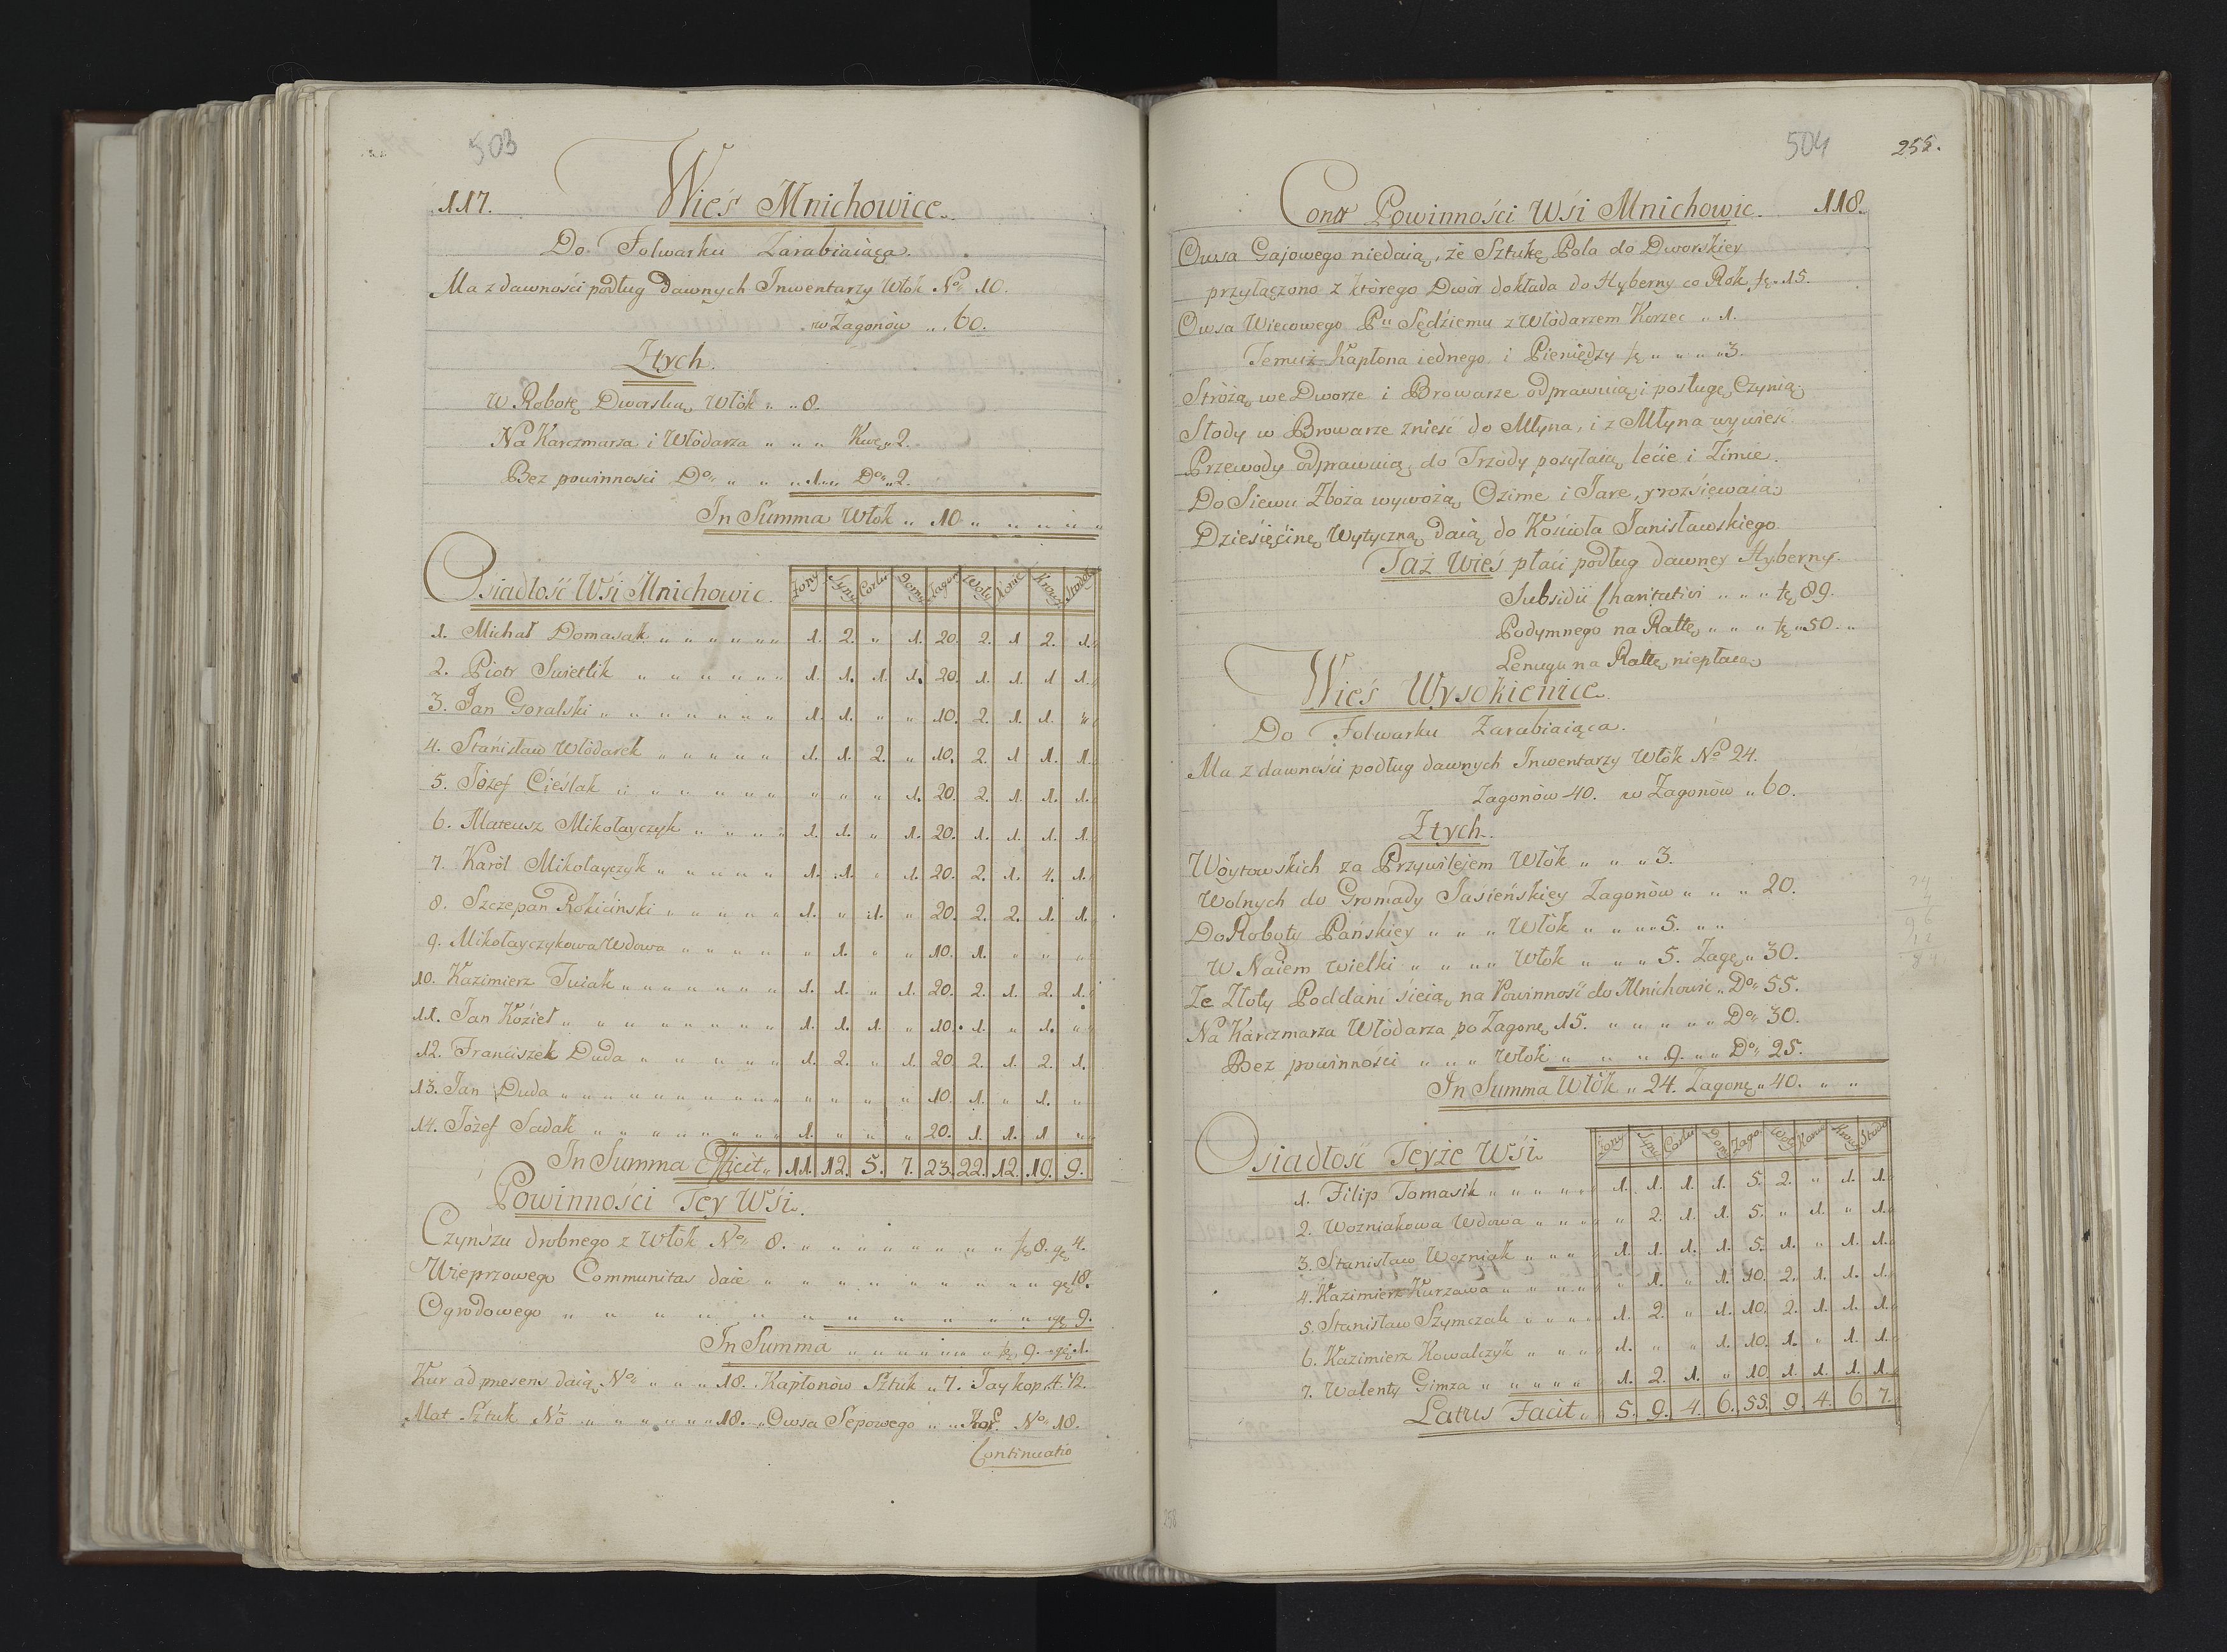 503
117. Wieś Mnichowice.
Do Folwarku Zarabiaiąca.
Ma z dawności podług dawnych Inwentarzy Włok No 10.
w Zagonòw „ 60.
Z tych.
W Robotę Dworską Włòk „ „ 8.
Na Karczmarza i Włòdarza „ „ „ Kwę „ 2.
Bez powinności Do „ „ „ 1 „ „ Do „ 2.
In Summa Włok „ 10 „ „ „ „ „
Osiadłość Wśi Mnichowic. Żony Syny Corki Domy Zagon Woły Konie Krowy Stodoły
1. Michał Domasak „ „ „ „ „ „ 1. 2. „ 1. 20. 2. 1 2. 1.
2. Piotr Swietlik „ „ „ „ „ „ 1. 1. 1. 1. 20. 1. 1. 1 1.
3. Jan Goralski „ „ „ „ „ „ „ 1. 1. „ „ 10. 2. 1. 1. „
4. Stanisław Włòdarek „ „ „ „ „ 1. 1. 2. „ 10. 2. 1 1. 1.
5. Jòzef Cieślak „ „ „ „ „ „ „ „ „ 1. 20. 2. 1. 1. 1.
6. Mateusz Mikołayczyk „ „ „ „ 1. 1. „ 1. 20. 1. 1. 1. 1.
7. Karòl Mikołayczyk „ „ „ „ „ 1. 1. „ 1. 20. 2. 1. 4. 1.
8. Szczepan Rokiciński „ „ „ „ „ 1. „ 1. „ 20. 2. 2. 1. 1.
9. Mikołayczykowa Wdowa „ „ „ „ „ 1. „ „ 10. 1. „ „ „
10. Kazimierz Tuiak „ „ „ „ „ „ „ 1. 1. „ 1. 20. 2. 1. 2. 1.
11. Jan Kòzieł „ „ „ „ „ „ „ „ 1. 1. 1. „ 10. 1. „ 1. „
12. Franciszek Duda „ „ „ „ „ „ 1. 2. „ 1. 20. 2. 1. 2. 1.
13. Jan Duda „ „ „ „ „ „ „ „ „ „ „ „ „ „ 10. 1. „ 1. „
14. Jòzef Sadak „ „ „ „ „ „ „ 1. „ „ „ 20. 1. 1. 1 „
In Summa Efficit „ 11. 12. 5. 7. 23. 22. 12. 19. 9.
Powinności Tey Wśi.
Czynszu drobnego z Włòk No 8. „ „ „ „ „ „ „ „ „ 8. 4.
Wieprzowego Communitas daie „ „ „ „ „ „ „ „ „ „ 18.
Ogrodowego „ „ „ „ „ „ „ „ „ „ 9.
In Summa „ „ „ „ „ „ 9. 1.
Kur ad presens daią No „ „ „ 18. Kapłonòw Sztuk „ 7. Jay kop. 4 1/2.
Mat Sztuk No „ „ „ „ „ „ 18. „ Owsa Sepowego „ „ Kor. No 18.
Continuatio
504 258.
Contr Powinności Wśi Mnichowic. 118.
Owsa Gajowego niedaią, że Sztukę Pola do Dworskiey
przyłączono z ktòrego Dwòr dokłada do Hyberny co Rok 15.
Owsa Wiecowego Pu Sędziemu z Włòdarzem Korzec „ 1.
Temuż Kapłona iednego i Pieniędzy „ „ „ „ 3.
Stròżą we Dworze i Browarze odprawuią i posługę Czynią.
Słody w Browarze znieść do Młyna, i z Młyna wywieść.
Przewody odprawuią, do Trzody posyłaią lecie i Zimie.
Do Siewu Zboża wywożą Ozime i Jare, y rozsiewaią
Dziesięcinę Wytyczną daią do Kościoła Janisławskiego
Taż Wieś płaci podług dawney Hyberny.
Subsidii Charitativi „ „ „ 89.
Podymnego na Rattę „ „ „ „ 50. „
Lenugu na Rattę niepłacą
Wieś Wysokienice.
Do Folwarku Zarabiaiąca.
Ma z dawności podług dawnych Inwentarzy Włòk No 24.
Zagonòw 40. w Zagonòw „ 60.
Z tych.
Wòytowskich za Przywilejem Włòk „ „ „ 3.
Wolnych do Gromady Jasieńskiey Zagonòw „ „ „ 20.
Do Roboty Pańskiey „ „ „ Włòk „ „ „ „ 5. „ „
W Naiem wielki „ „ „ „ Włòk „ „ „ 5. Zagę „ 30.
Ze Zloty Poddani sieią na Powinność do Mnichowic „ Do 55.
Na Karczmarza Włòdarza po Zagonę 15. „ „ „ „ „ Do 30.
Bez powinności „ „ „ Włòk „ „ „ 9. „ „ Do 25.
In Summa Włòk „ 24. Zagonę „ 40. „ „
Osiadłość Teyże Wśi. Żony Syny Corki Domy Zago. Woły Konie Krowy Stodo.
1. Filip Tomasik „ „ „ „ „ 1. 1. 1. 1. 5. 2. „ 1. 1.
2. Wozniakowa Wdowa „ „ „ „ „ 2. 1. 1. 5. „ 1. „ 1.
3. Stanisław Wozniak „ „ „ 1. 1. 1. 1. 5. 1. „ 1. 1.
4. Kazimierz Kurzawa „ „ „ „ „ „ 1. „ 1. 10. 2. 1. 1. 1.
5. Stanisław Szymczak „ „ „ „ 1. 2. „ 1. 10. 2. 1. 1. 1.
6. Kazimierz Kowalczyk „ „ „ „ 1. „ „ 1. 10. 1. „ 1. 1.
7. Walenty Gimza „ „ „ „ „ „ 1. 2. 1. „ 10. 1. 1. 1. 1.
Latus Facit „ 5. 9. 4. 6. 55. 9. 4. 6 7.
258